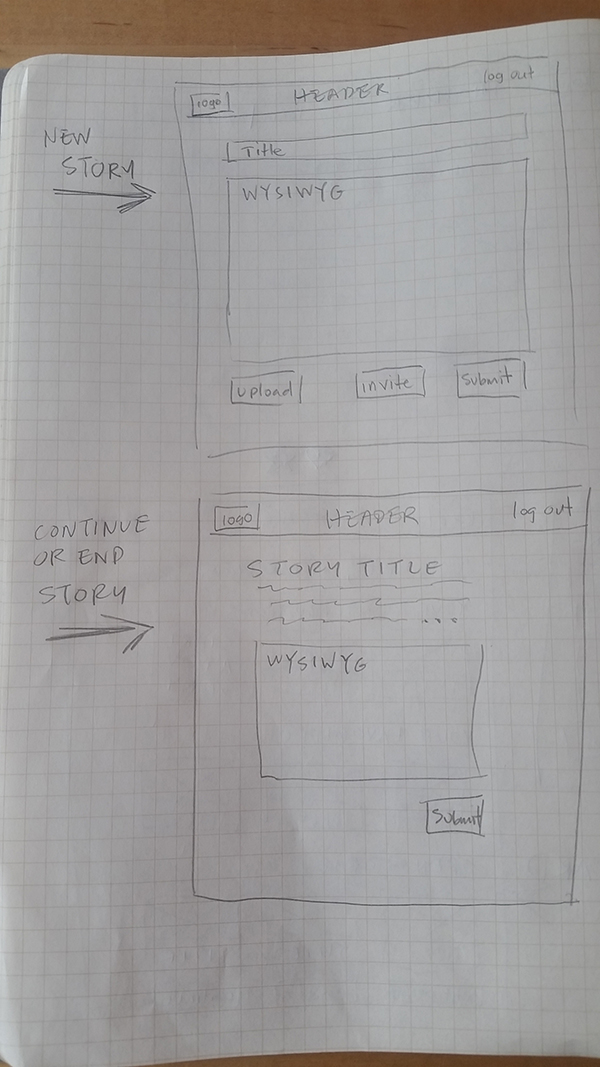 NEW
STORY
logo
HEADER
log out
Title
WYSIWYG
upload
invite
Submit
CONTINUE
OR END
STORY
logo
HEADER
log out
STORY TITLE
...
WYSIWYG
Submit